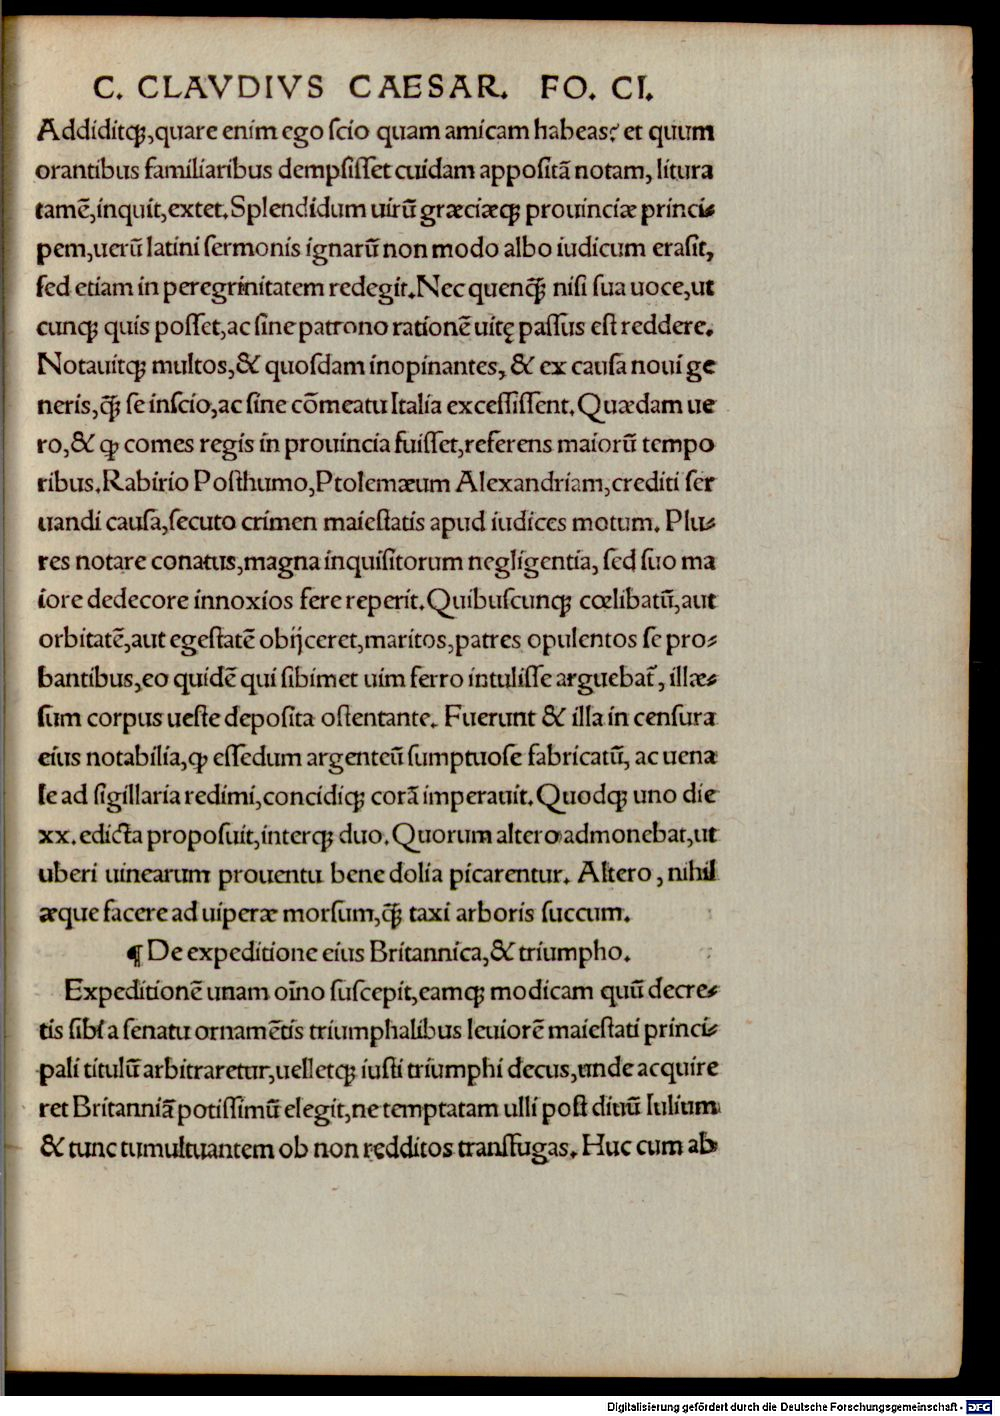 C. CLAVDIVS CAESAR. FO. CI.
Addiditq;,quare enim ego ſcio quam amicam habeas? et quum
orantibus familiaribus dempſiſſet cuidam appoſitā notam, litura
tamē,inquit,extet.Splendidum uirū græciæq; prouinciæ princi⸗
pem,uerū latini ſermonis ignarū non modo albo iudicum eraſit,
ſed etiam in peregrinitatem redegit.Nec quenq̄; niſi ſua uoce,ut
cunq; quis poſſet,ac ſine patrono rationē uitę paſſus eſt reddere.
Notauitq; multos,& quoſdam inopinantes, & ex cauſa noui ge
neris,q̄; ſe inſcio,ac ſine cōmeatu Italia exceſſiſſent.Quædam ue
ro,& ꝙ comes regis in prouincia fuiſſet,referens maiorū tempo
ribus.Rabirio Poſthumo,Ptolemæum Alexandriam,crediti ſer
uandi cauſa,ſecuto crimen maieſtatis apud iudices motum. Plu⸗
res notare conatus,magna inquiſitorum negligentia, ſed ſuo ma
iore dedecore innoxios fere reperit.Quibuſcunq; cœlibatū,aut
orbitatē,aut egeſtatē obijceret,maritos,patres opulentos ſe pro⸗
bantibus,eo quidē qui ſibimet uim ferro intuliſſe arguebat̄, illæ⸗
ſum corpus ueſte depoſita oſtentante. Fuerunt & illa in cenſura
eius notabilia,ꝙ eſſedum argenteū ſumptuoſe fabricatū, ac uena
le ad ſigillaria redimi,concidiq; corā imperauit.Quodq; uno die
xx.edicta propoſuit,interq; duo.Quorum altero admonebat,ut
uberi uinearum prouentu bene dolia picarentur. Altero, nihil
æque facere ad uiperæ morſum,q̄; taxi arboris ſuccum.
¶ De expeditione eius Britannica,& triumpho.
Expeditionē unam oīno ſuſcepit,eamq; modicam quū decre⸗
tis ſibi a ſenatu ornamētis triumphalibus leuiorē maieſtati princi⸗
pali titulū arbitraretur,uelletq; iuſti triumphi decus,unde acquire
ret Britanniā potiſſimū elegit,ne temptatam ulli poſt diuū Iulium
& tunc tumultuantem ob non redditos tranſfugas. Huc cum ab
Digitalisierung gefördert durch die Deutsche Forschungsgemeinschaft - DFG